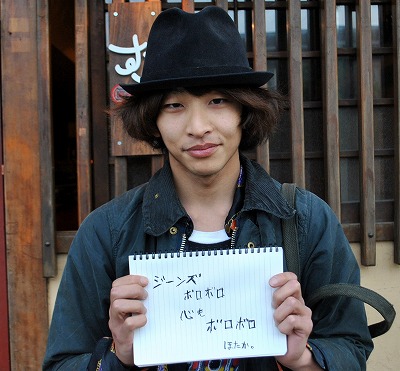 す
ジーンズ
ボロボロ
心も
ボロボロ
ほたか。